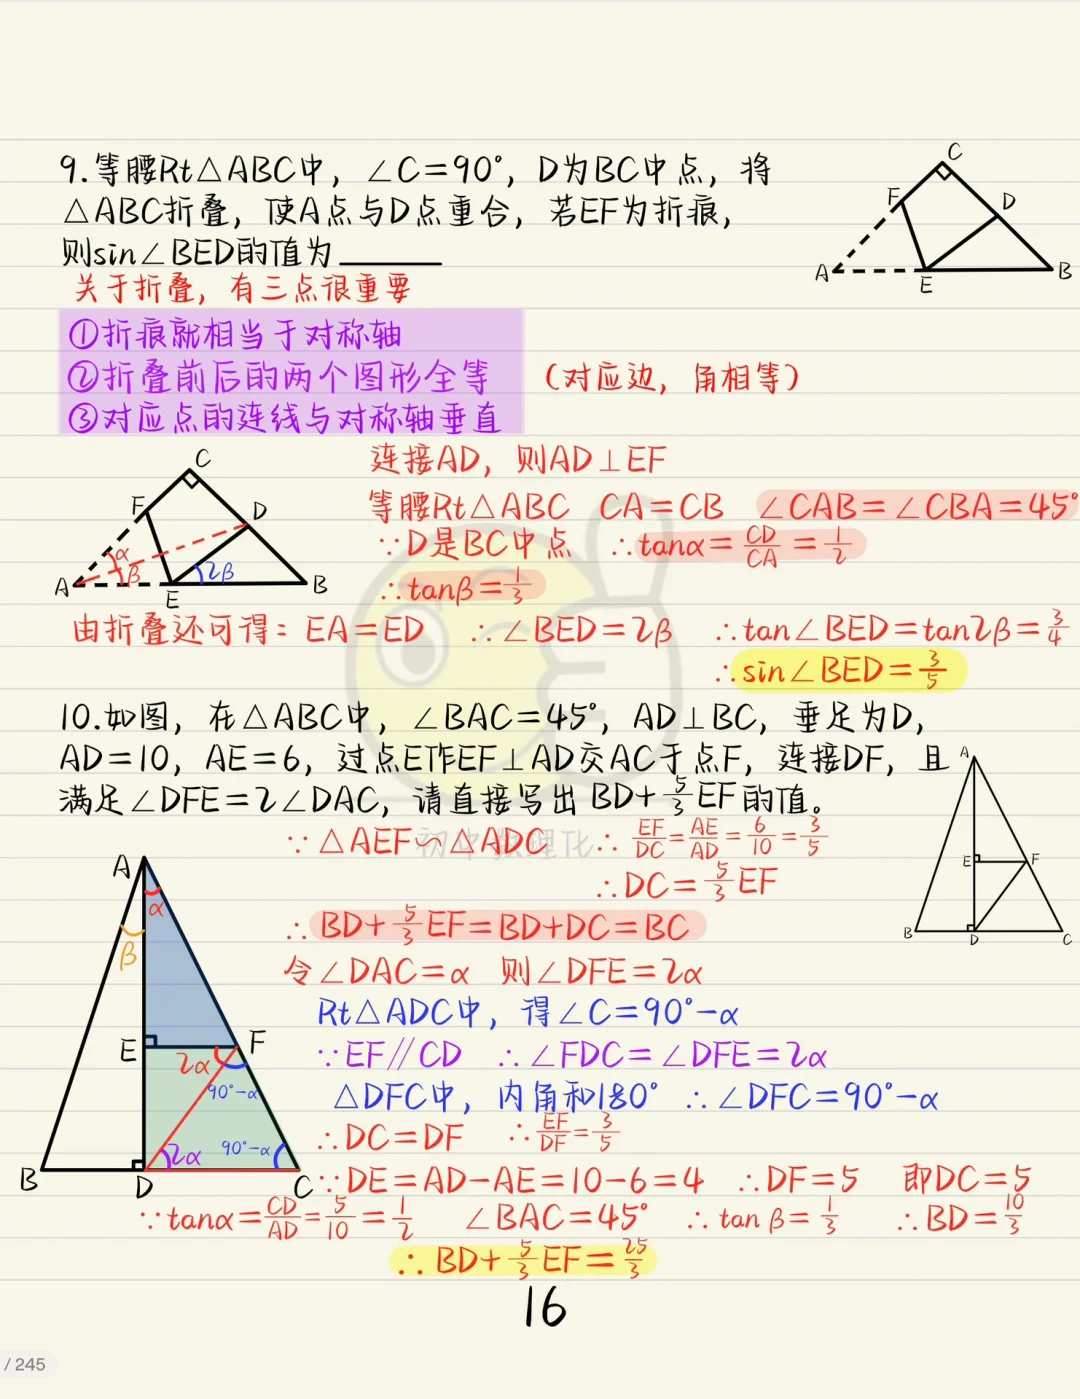 9.等腰Rt△ABC中，∠C=90°，D为BC中点，将
△ABC折叠，使A点与D点重合，若EF为折痕，
则sin∠BED的值为______
C
F
D
A
E
B
关于折叠，有三点很重要
①折痕就相当于对称轴
②折叠前后的两个图形全等 （对应边，角相等）
③对应点的连线与对称轴垂直
连接AD，则AD⊥EF
等腰Rt△ABC CA=CB ∠CAB=∠CBA=45°
∵D是BC中点 ∴tanα=CD/CA=1/2
∴tanβ=1/3
C
F
D
α
A
β
2β
B
E
由折叠还可得：EA=ED ∴∠BED=2β ∴tan∠BED=tan2β=3/4
∴sin∠BED=3/5
10.如图，在△ABC中，∠BAC=45°，AD⊥BC，垂足为D，
AD=10，AE=6，过点E作EF⊥AD交AC于点F，连接DF，且
满足∠DFE=2∠DAC，请直接写出BD+5/3EF的值。
A
E
F
B
D
C
初中数理化
∵△AEF∽△ADC ∴EF/DC=AE/AD=6/10=3/5
∴DC=5/3EF
∴BD+5/3EF=BD+DC=BC
令∠DAC=α 则∠DFE=2α
Rt△ADC中，得∠C=90°-α
∵EF∥CD ∴∠FDC=∠DFE=2α
△DFC中，内角和180° ∴∠DFC=90°-α
∴DC=DF ∴EF/DF=3/5
A
α
β
E
F
2α
90°-α
2α
90°-α
B
D
C
∵DE=AD-AE=10-6=4 ∴DF=5 即DC=5
∵tanα=CD/AD=5/10=1/2 ∠BAC=45° ∴tanβ=1/3 ∴BD=10/3
∴BD+5/3EF=25/3
16
/ 245